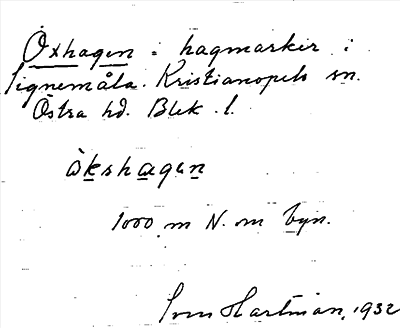 Öxhagen : hagmarker i
Signemåla. Kristianopels sn.
Östra hd. Blek. l.
òkshagen
1000 m N. om byn.
Sven Hartman, 1932